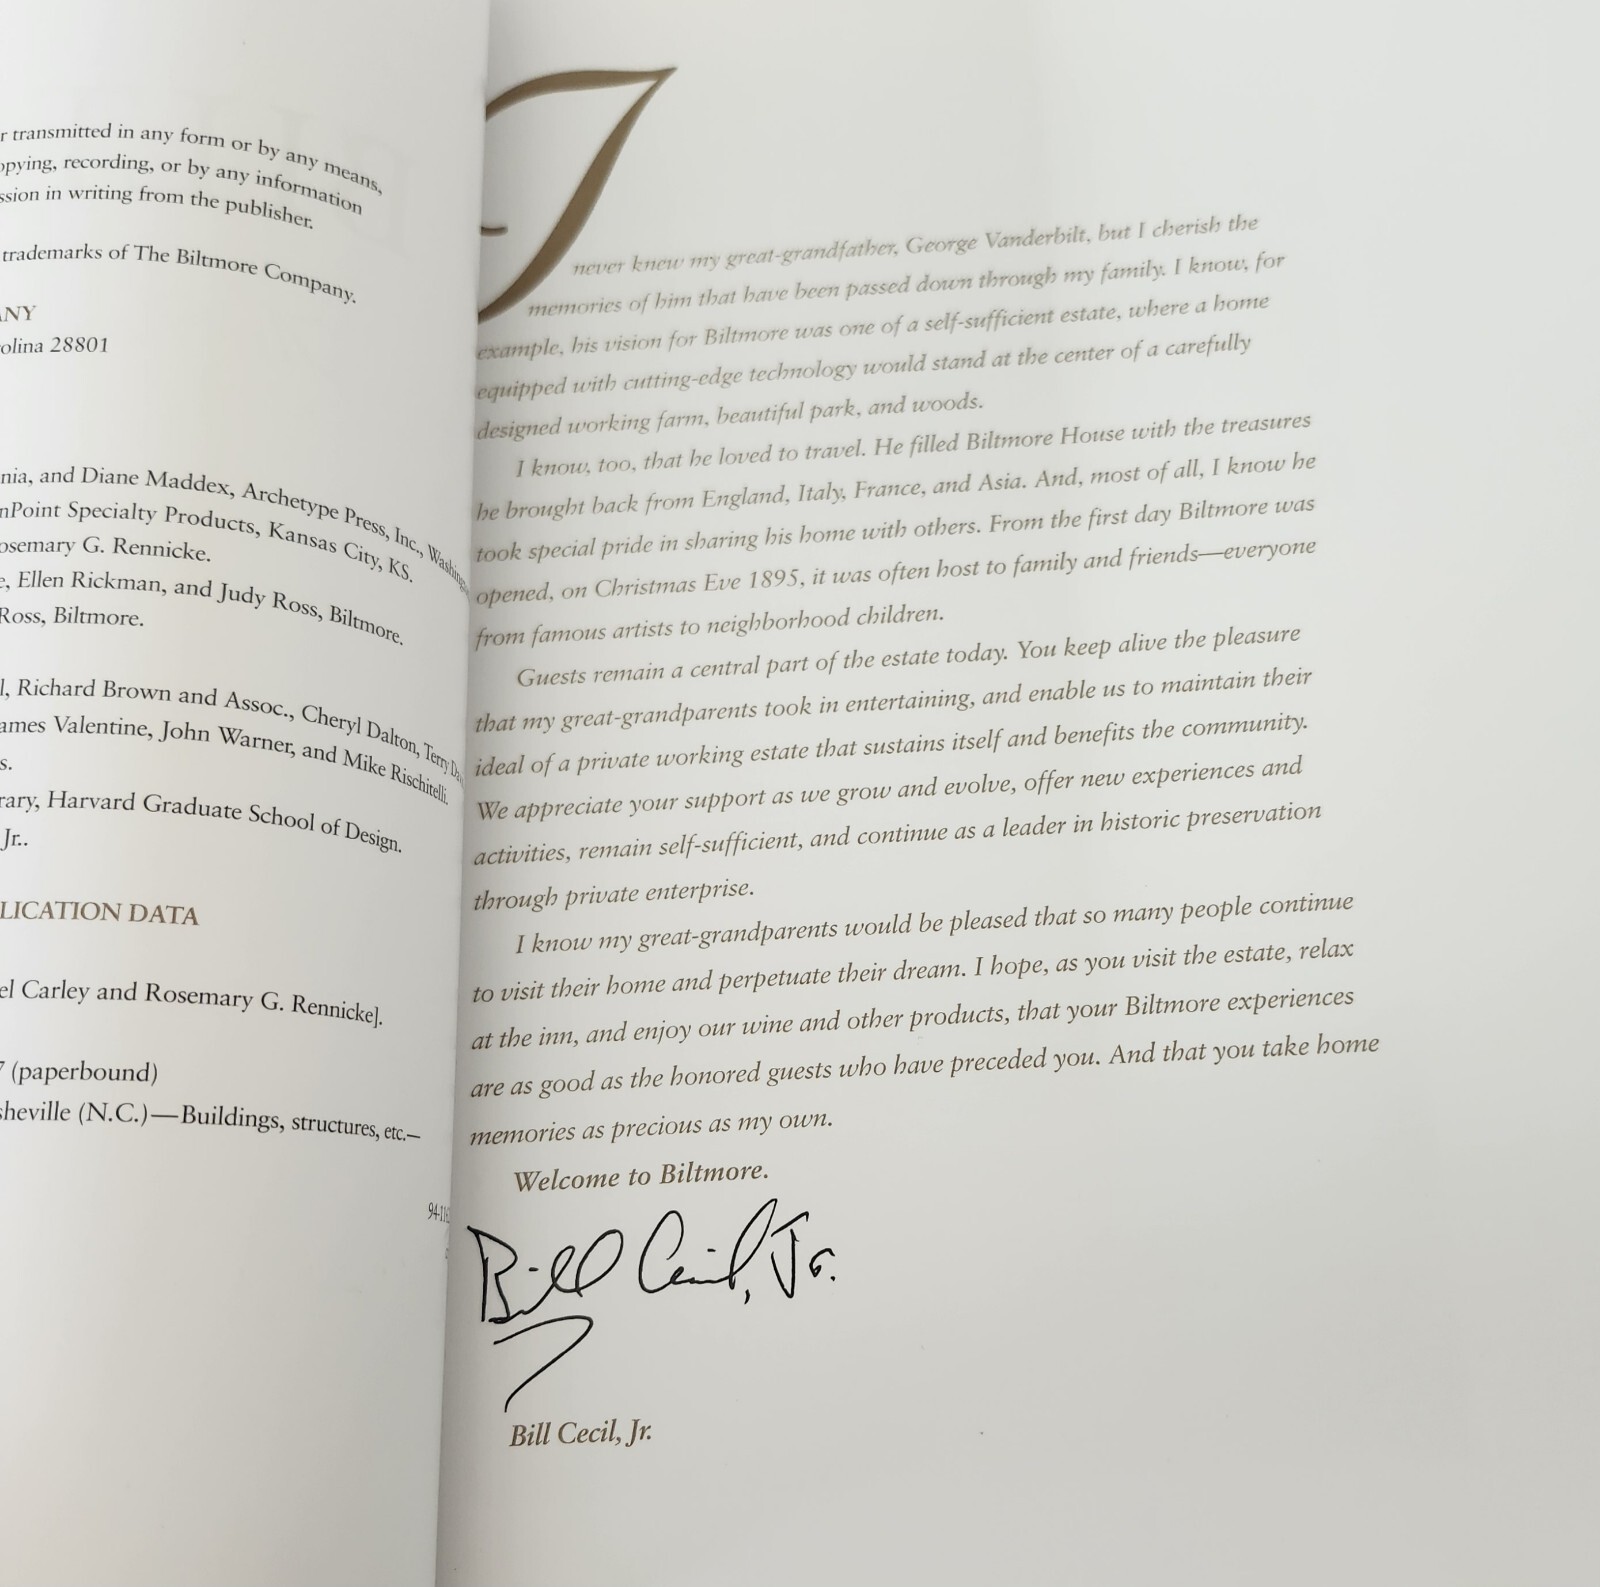 r transmitted in any form or by any means,
opying, recording, or by any information
ssion in writing from the publisher.
trademarks of The Biltmore Company.
ANY
olina 28801
nia, and Diane Maddex, Archetype Press, Inc., Washing
nPoint Specialty Products, Kansas City, KS.
osemary G. Rennicke.
e, Ellen Rickman, and Judy Ross, Biltmore.
Ross, Biltmore.
l, Richard Brown and Assoc., Cheryl Dalton, Terry Da
ames Valentine, John Warner, and Mike Rischitelli.
s.
rary, Harvard Graduate School of Design.
Jr..
LICATION DATA
el Carley and Rosemary G. Rennicke].
7 (paperbound)
sheville (N.C.)—Buildings, structures, etc.–
I never knew my great-grandfather, George Vanderbilt, but I cherish the
memories of him that have been passed down through my family. I know, for
example, his vision for Biltmore was one of a self-sufficient estate, where a home
equipped with cutting-edge technology would stand at the center of a carefully
designed working farm, beautiful park, and woods.
I know, too, that he loved to travel. He filled Biltmore House with the treasures
he brought back from England, Italy, France, and Asia. And, most of all, I know he
took special pride in sharing his home with others. From the first day Biltmore was
opened, on Christmas Eve 1895, it was often host to family and friends—everyone
from famous artists to neighborhood children.
Guests remain a central part of the estate today. You keep alive the pleasure
that my great-grandparents took in entertaining, and enable us to maintain their
ideal of a private working estate that sustains itself and benefits the community.
We appreciate your support as we grow and evolve, offer new experiences and
activities, remain self-sufficient, and continue as a leader in historic preservation
through private enterprise.
I know my great-grandparents would be pleased that so many people continue
to visit their home and perpetuate their dream. I hope, as you visit the estate, relax
at the inn, and enjoy our wine and other products, that your Biltmore experiences
are as good as the honored guests who have preceded you. And that you take home
memories as precious as my own.
Welcome to Biltmore.
Bill Cecil, Jr.
Bill Cecil, Jr.